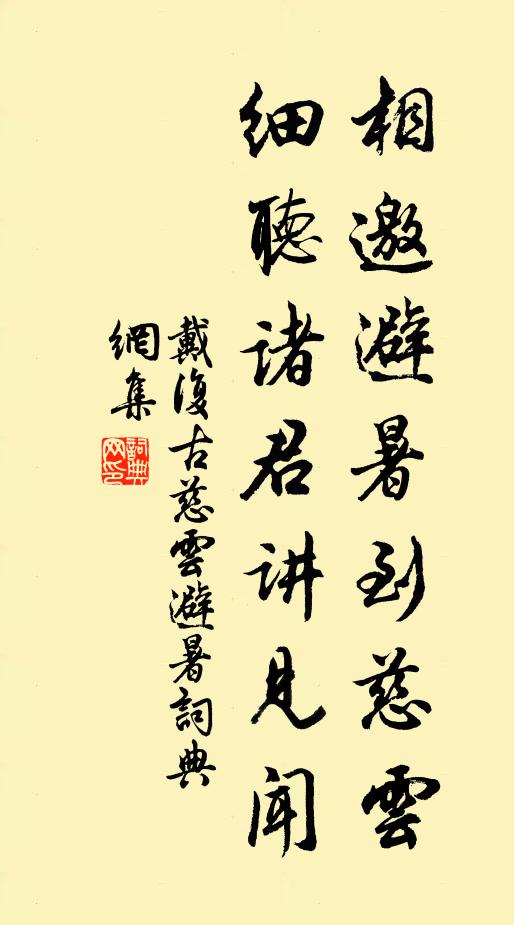 相邀避暑到慈雲
细聴诸君讲見闻
戴復古慈雲避暑詞典
網集
詞典网印